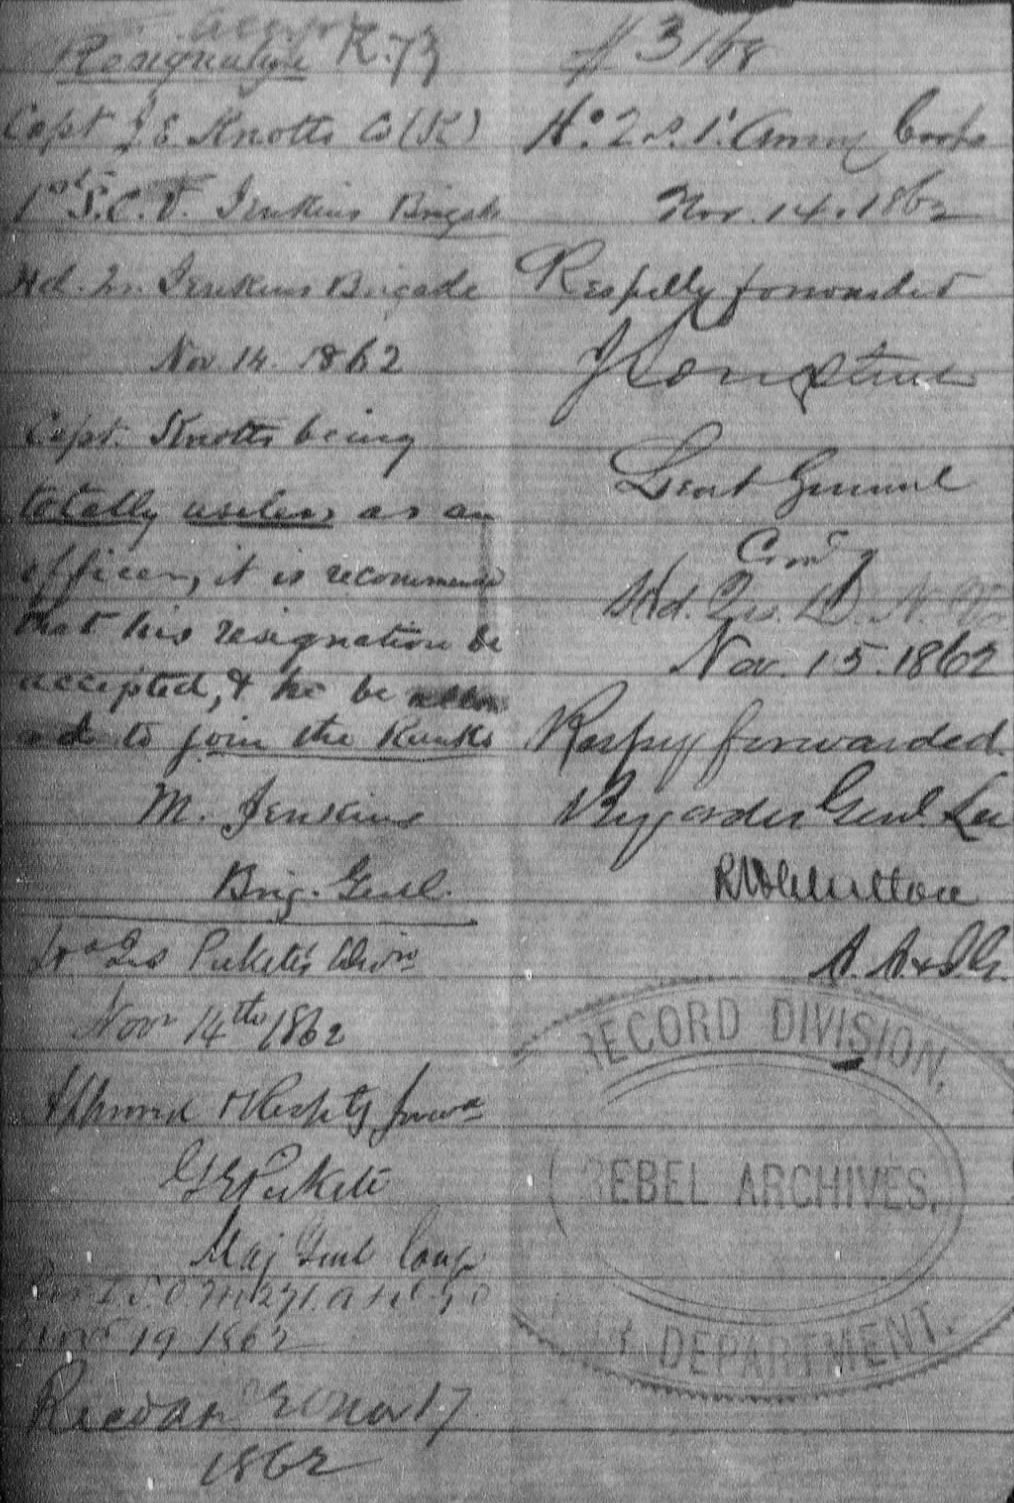 Resignation K. 73
Capt J E Knotts Co (K)
1st S.C.V. Jenkins Brigade
Hd. Qr. Jenkins Brigade
Nov 14. 1862
Capt. Knotts being
totally useless as an
officer, it is recommended
that his resignation be
accepted, & he be allow
ed to join the Ranks
M. Jenkins
Brig. Genl.
Hd Qrs Picketts Divn
Novr 14th 1862
Approved & Respty forwd
G E Pickett
Maj Genl Comg
Novr 19 1862
Nov 17
1862
3168
Hd. Qrs. 1st Army Corps
Nov. 14. 1862
Respctlly forwarded
J Longstreet
Lieut General
Comdg
Hd. Qrs. D. N. Va
Nov. 15. 1862
Respy forwarded.
By order Genl. Lee
R H Chilton
A. A & I G.
RECORD DIVISION,
REBEL ARCHIVES,
WAR DEPARTMENT.